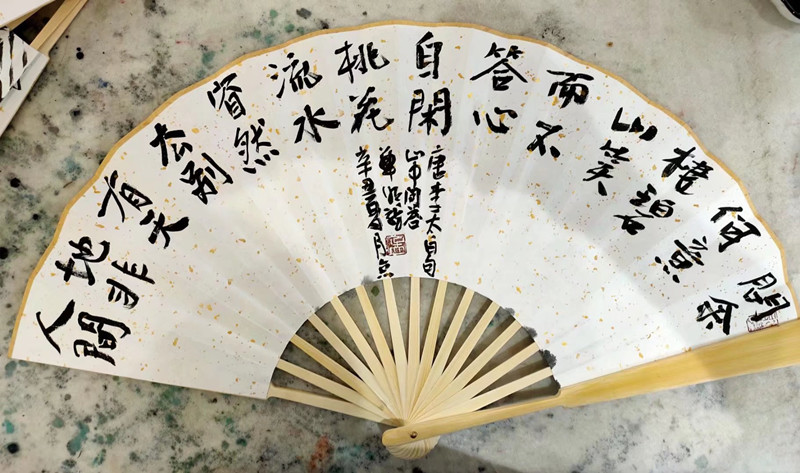 問余
何意
棲碧
山笑
而不
答心
自閑
桃花
流水
窅然
去別
有天
地非
人間
唐李太白句
山中問答
辛丑夏月